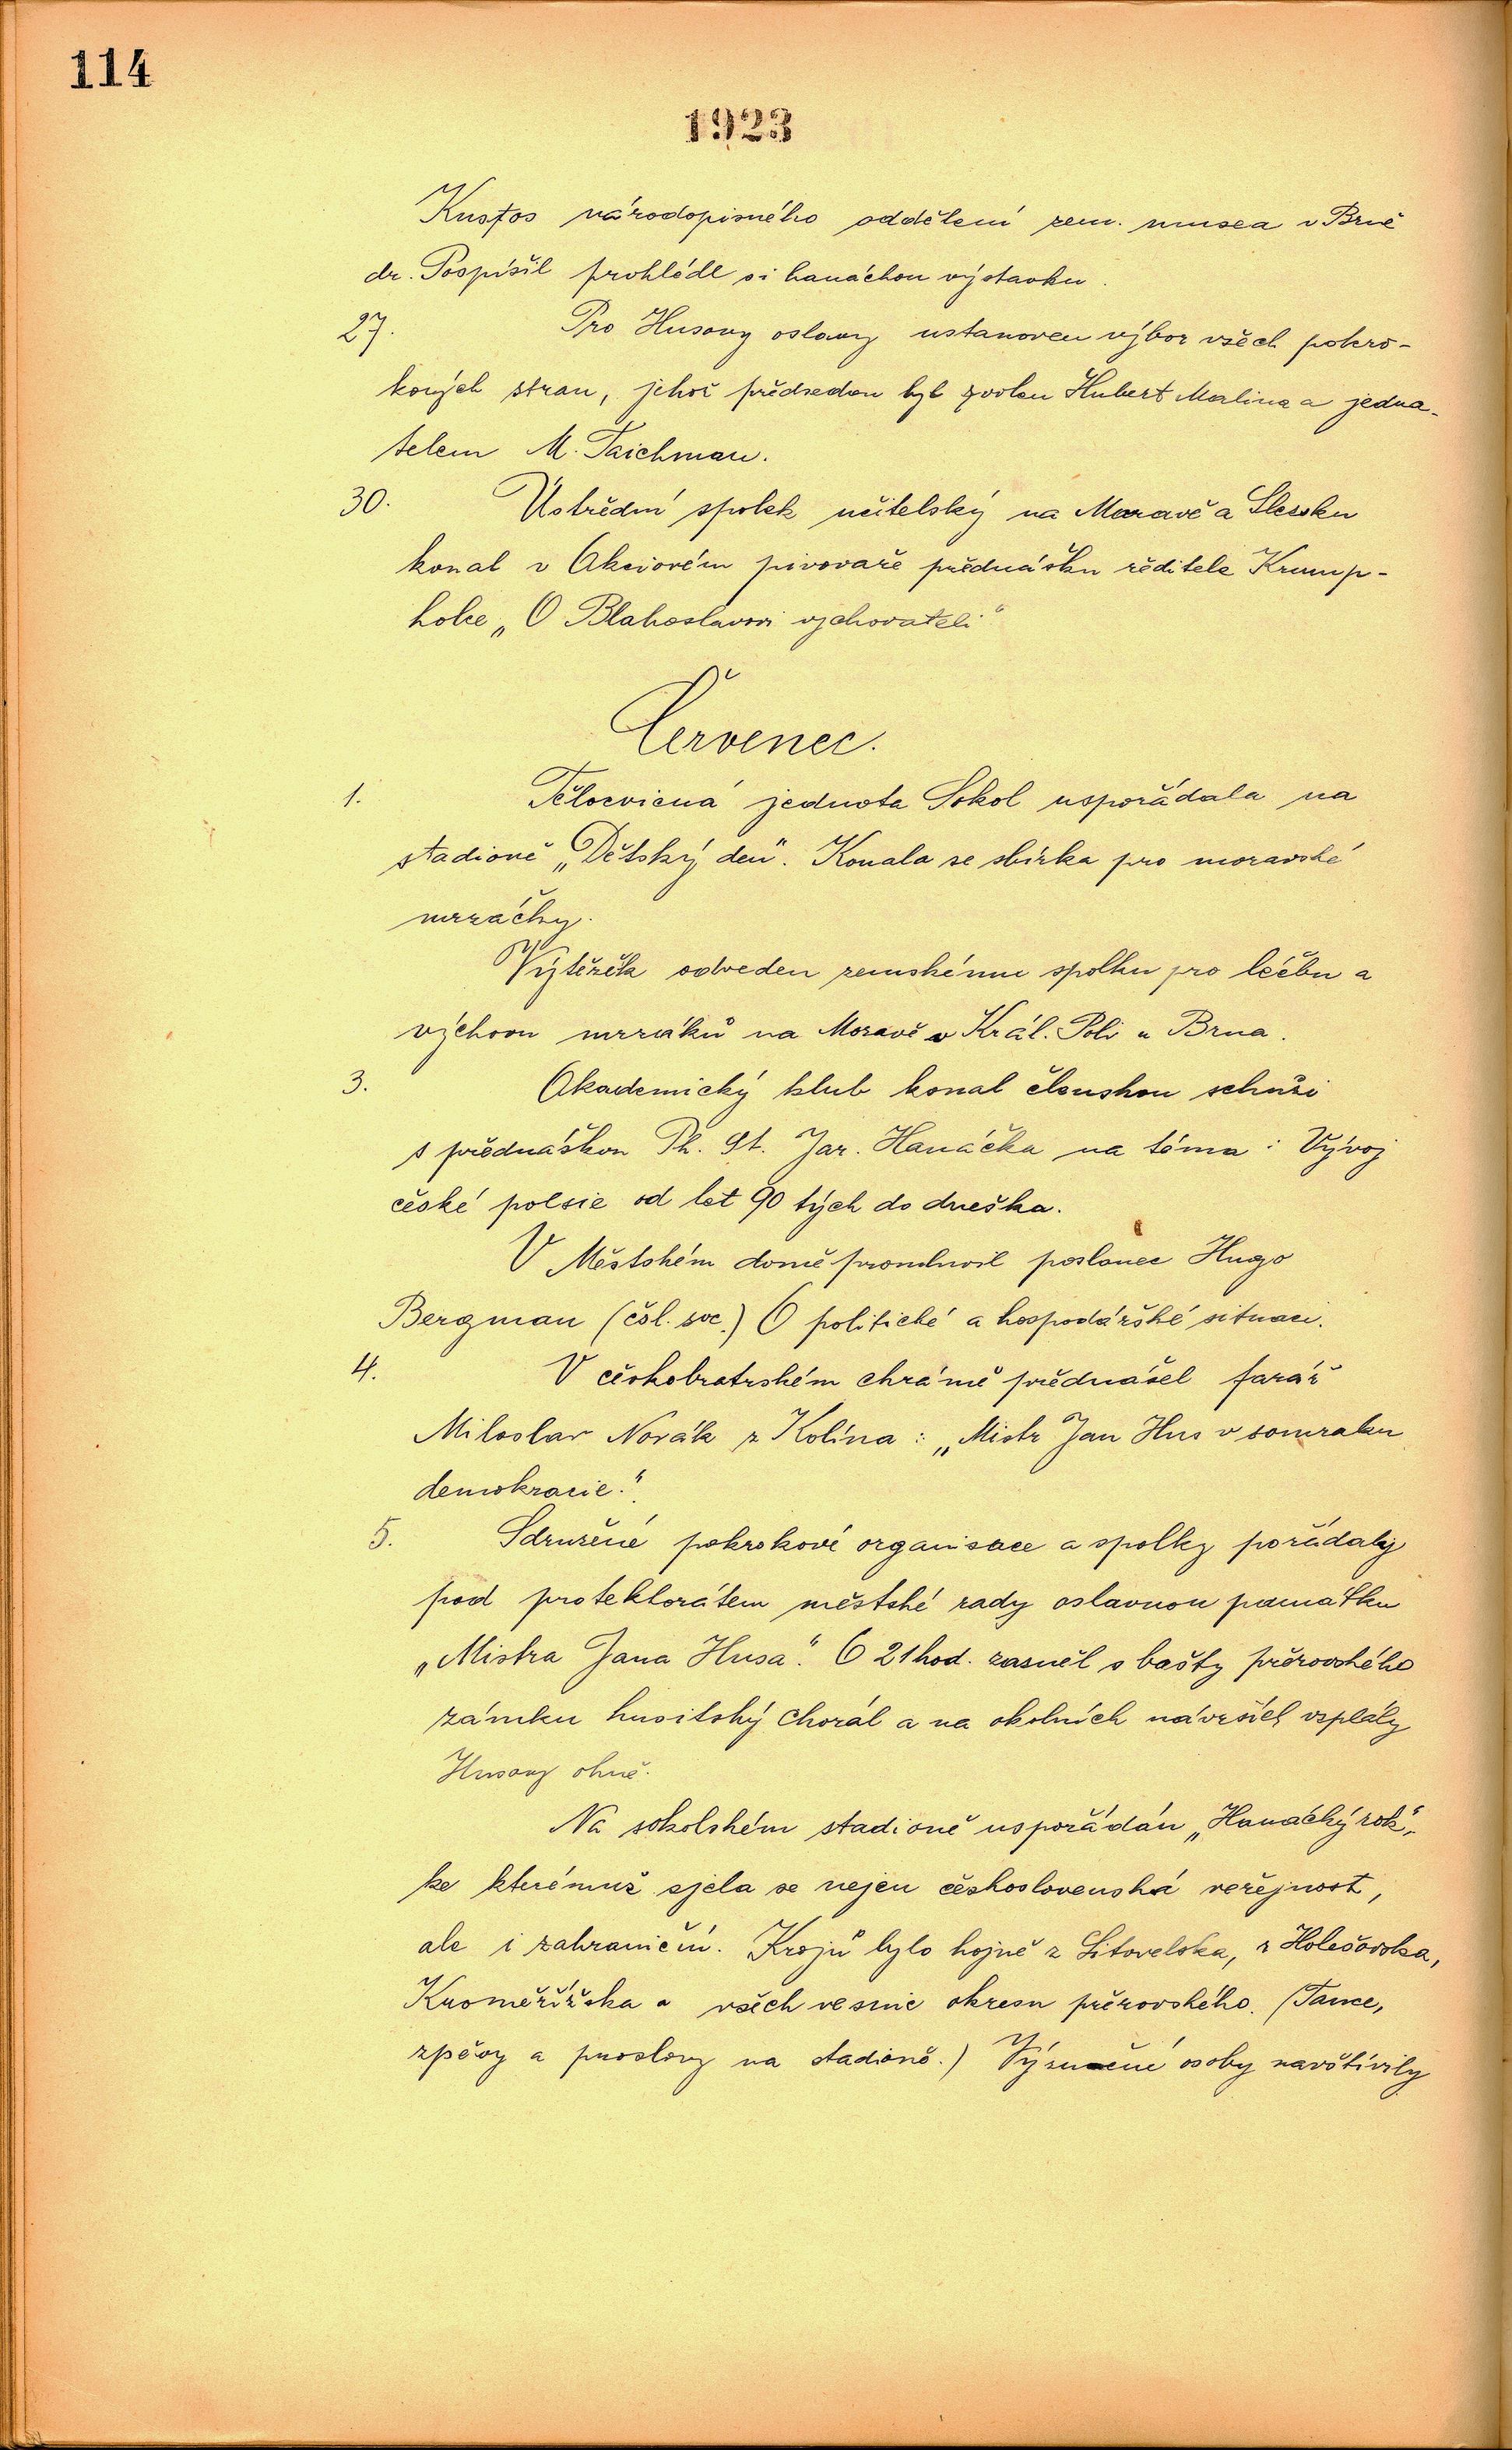 114
1923
Kustos národopisného oddělení zem. musea v Brně
dr. Pospíšil prohlédl si hanáckou výstavku.
27. Pro Husovy oslavy ustanoven výbor všech pokro-
kových stran, jehož předsedou byl zvolen Hubert Malina a jedna-
telem M. Taichman.
30. Ústřední spolek učitelský na Moravě a Slezsku
konal v Akciovém pivovaře přednášku ředitele Krump-
holce „O Blahoslavovi vychovateli“
Červenec.
1. Tělocvičná jednota Sokol uspořádala na
stadioně „Dětský den“. Konala se sbírka pro moravské
mrzáčky.
Výtěžek odveden zemskému spolku pro léčbu a
výchovu mrzáků na Moravě v Král. Poli u Brna.
3. Akademický klub konal členskou schůzi
s přednáškou Ph. St. Jar. Hanáčka na téma: Vývoj
české poesie od let 90 tých do dneška.
V Městském domě promluvil poslanec Hugo
Bergman (čsl. soc.) O politické a hospodářské situaci.
4. V českobratrském chrámě přednášel farář
Miloslav Novák z Kolína: „Mistr Jan Hus v soumraku
demokracie.“
5. Sdružené pokrokové organisace a spolky pořádaly
pod protektorátem městské rady oslavnou památku
„Mistra Jana Husa“. O 21 hod. zazněl s bašty přerovského
zámku husitský chorál a na okolních návrších vzplály
Husovy ohně.
Na sokolském stadioně uspořádán „Hanácký rok“,
ke kterémuž sjela se nejen československá veřejnost,
ale i zahraniční. Krojů bylo hojně z Litovelska, z Holešovska,
Kroměřížska a všech vesnic okresu přerovského. (Tance,
zpěvy a proslovy na stadioně.) Význačné osoby navštívily